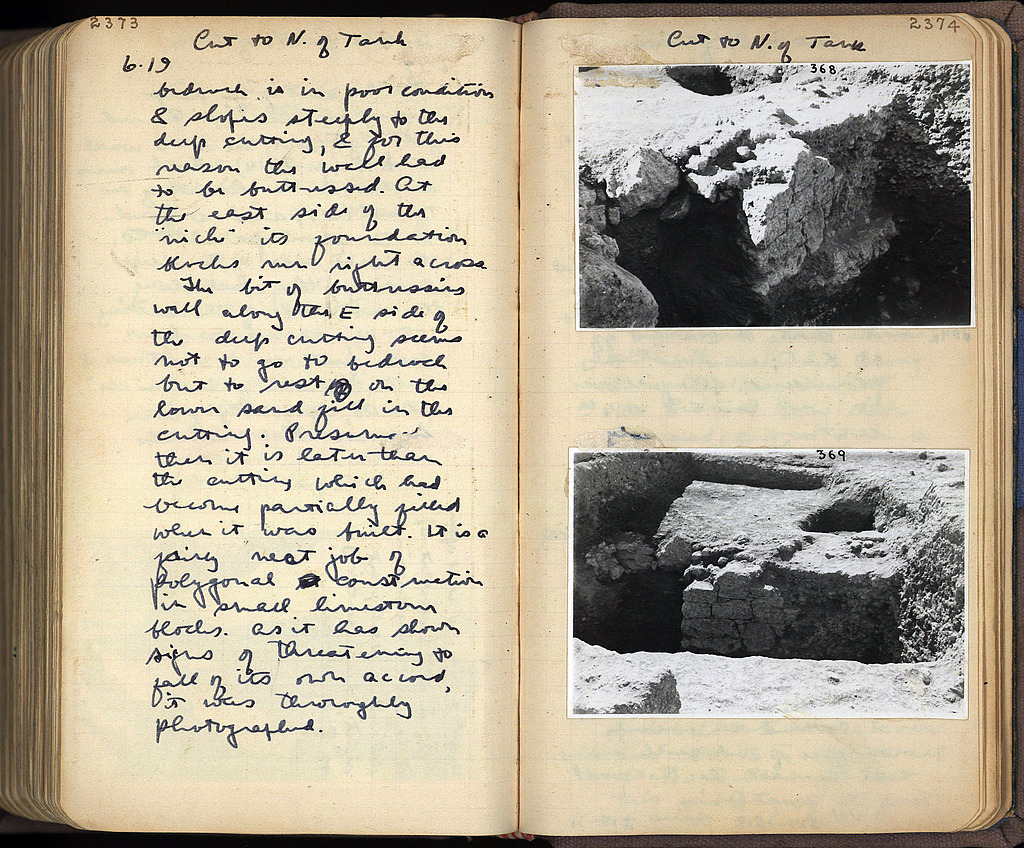 2373
Cut to N. of Tank
6.19
bedrock is in poor condition
& slopes steeply to the
deep cutting, & for this
reason the wall had
to be buttressed. At
the east side of the
'nich' its foundation
blocks run right across
The bit of buttressing
wall along the E side of
the deep cutting seems
not to go to bedrock
but to rest on the
lower sand fill in the
cutting.
then it is later than
the cutting which had
become partially filled
when it was built. It is a
fairly neat job of
polygonal construction
in small limestone
blocks. As it has shown
signs of threatening to
fall of its own accord,
it was thoroughly
photographed.
2374
Cut to N. of Tank
368
369